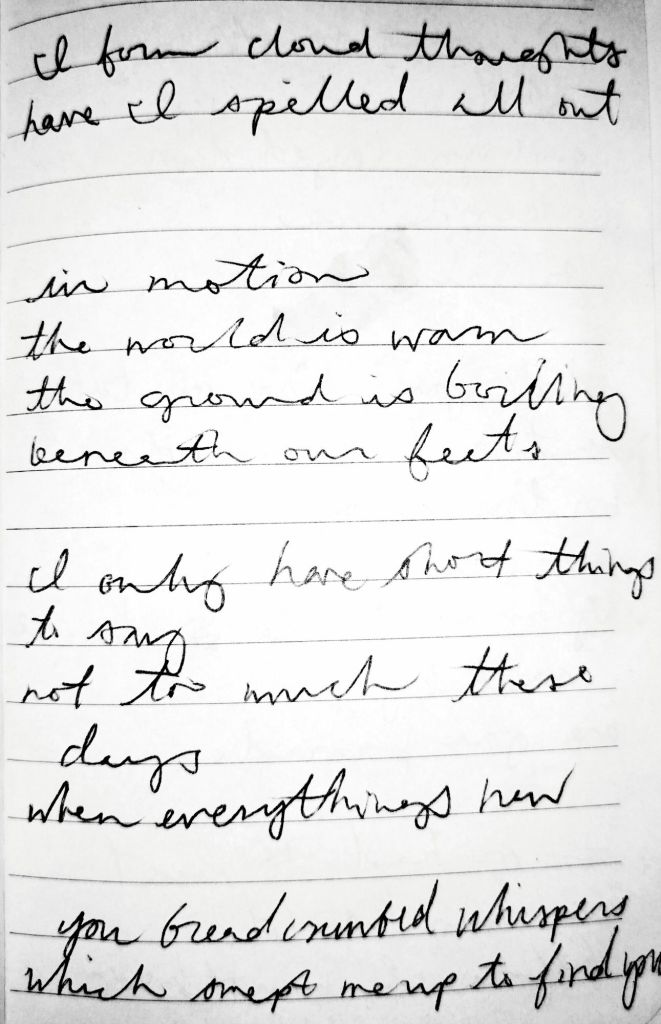 I form cloud thoughts
have I spelled all out
in motion
the world is warm
the ground is boiling
beneath our feets
I only have short things
to say
not too much these
days
when everythings new
you breadcrumbed whispers
which swept me up to find you